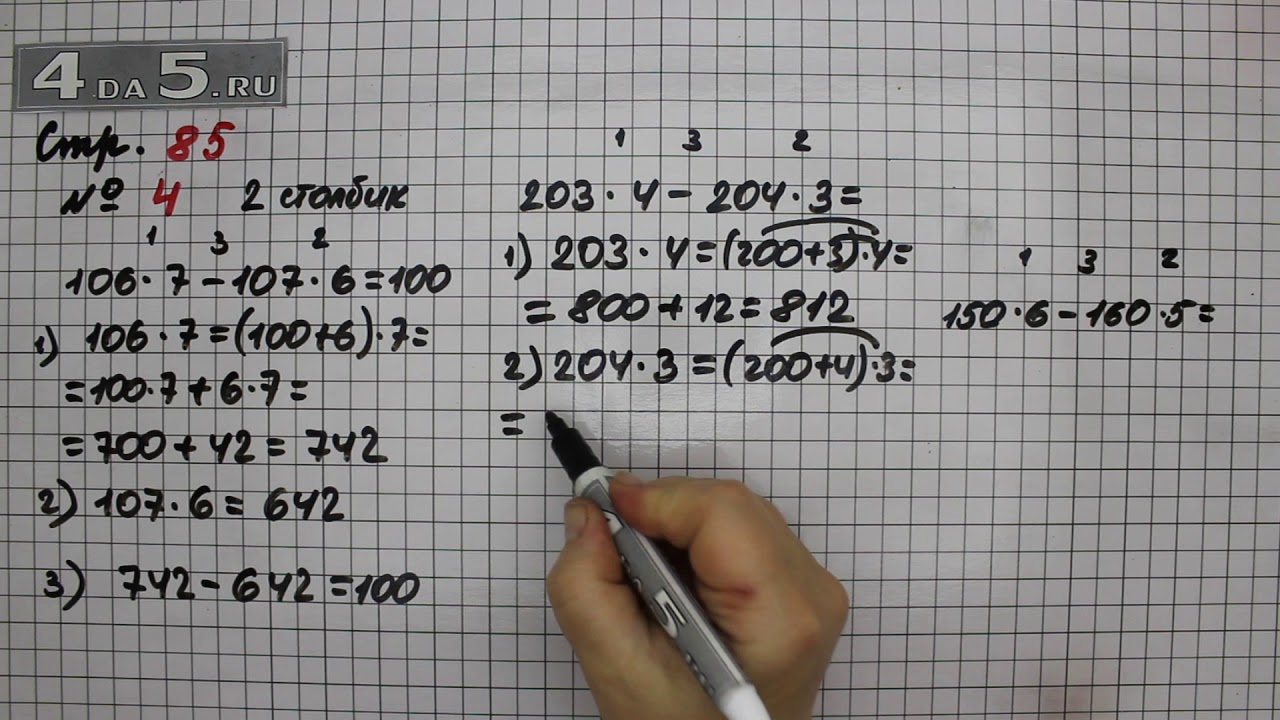 4DA5.RU
Стр. 85
№ 4 2 столбик
1 3 2
106·7-107·6=100
1) 106·7=(100+6)·7=
=100·7+6·7=
=700+42=742
2) 107·6=642
3) 742-642=100
1 3 2
203·4-204·3=
1) 203·4=(200+3)·4=
=800+12=812
2) 204·3=(200+4)·3=
=
1 3 2
150·6-160·5=
5